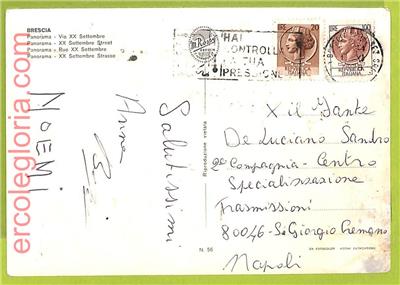 BRESCIA
Panorama - Via XX Settembre
Panorama - XX Settembre Street
Panorama - Rue XX Settembre
Panorama - XX Settembre Strasse
HAI
CONTROLLA
LA TUA
PRESSIONE
LIRE 20
LIRE 100
REPUBBLICA
ITALIANA
Salutissimi
Anna
NOEMI
Riproduzione vietata
N. 56
X il Fante
De Luciano Sandro
2ª Compagnia - Centro
Specializzazione
Trasmissioni
80046 - S. Giorgio Cremano
Napoli
ercolegloria.com